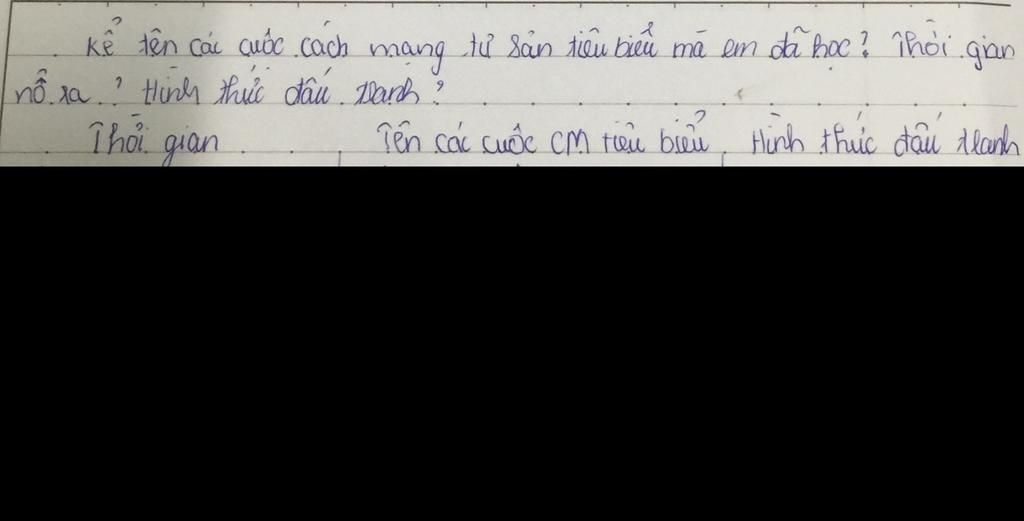 Kể tên các cuộc cách mạng tư sản tiêu biểu mà em đã học? Thời gian
nổ ra? Hình thức đấu tranh?
Thời gian Tên các cuộc CM tiêu biểu Hình thức đấu tranh